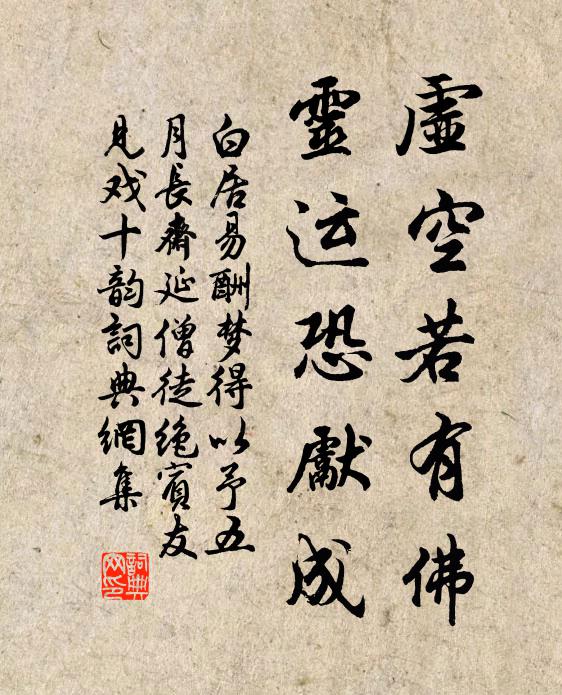 虛空若有佛
靈运恐獻成
白居易酬梦得以予五
月長齋延僧徒绝賓友
見戏十韵詞典網集
詞典网印